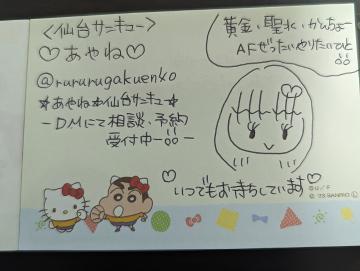 〈仙台サンキュー〉
♡あやね♡
@rururugakuenko
☆あやね☆仙台サンキュー☆
ーDMにて相談、予約
受付中ー!!
黄金、聖水、かんちょー
AFぜったいやりたいひと
!!
♡いつでもお待ちしています♡
©U/F
© '23 SANRIO Ⓛ